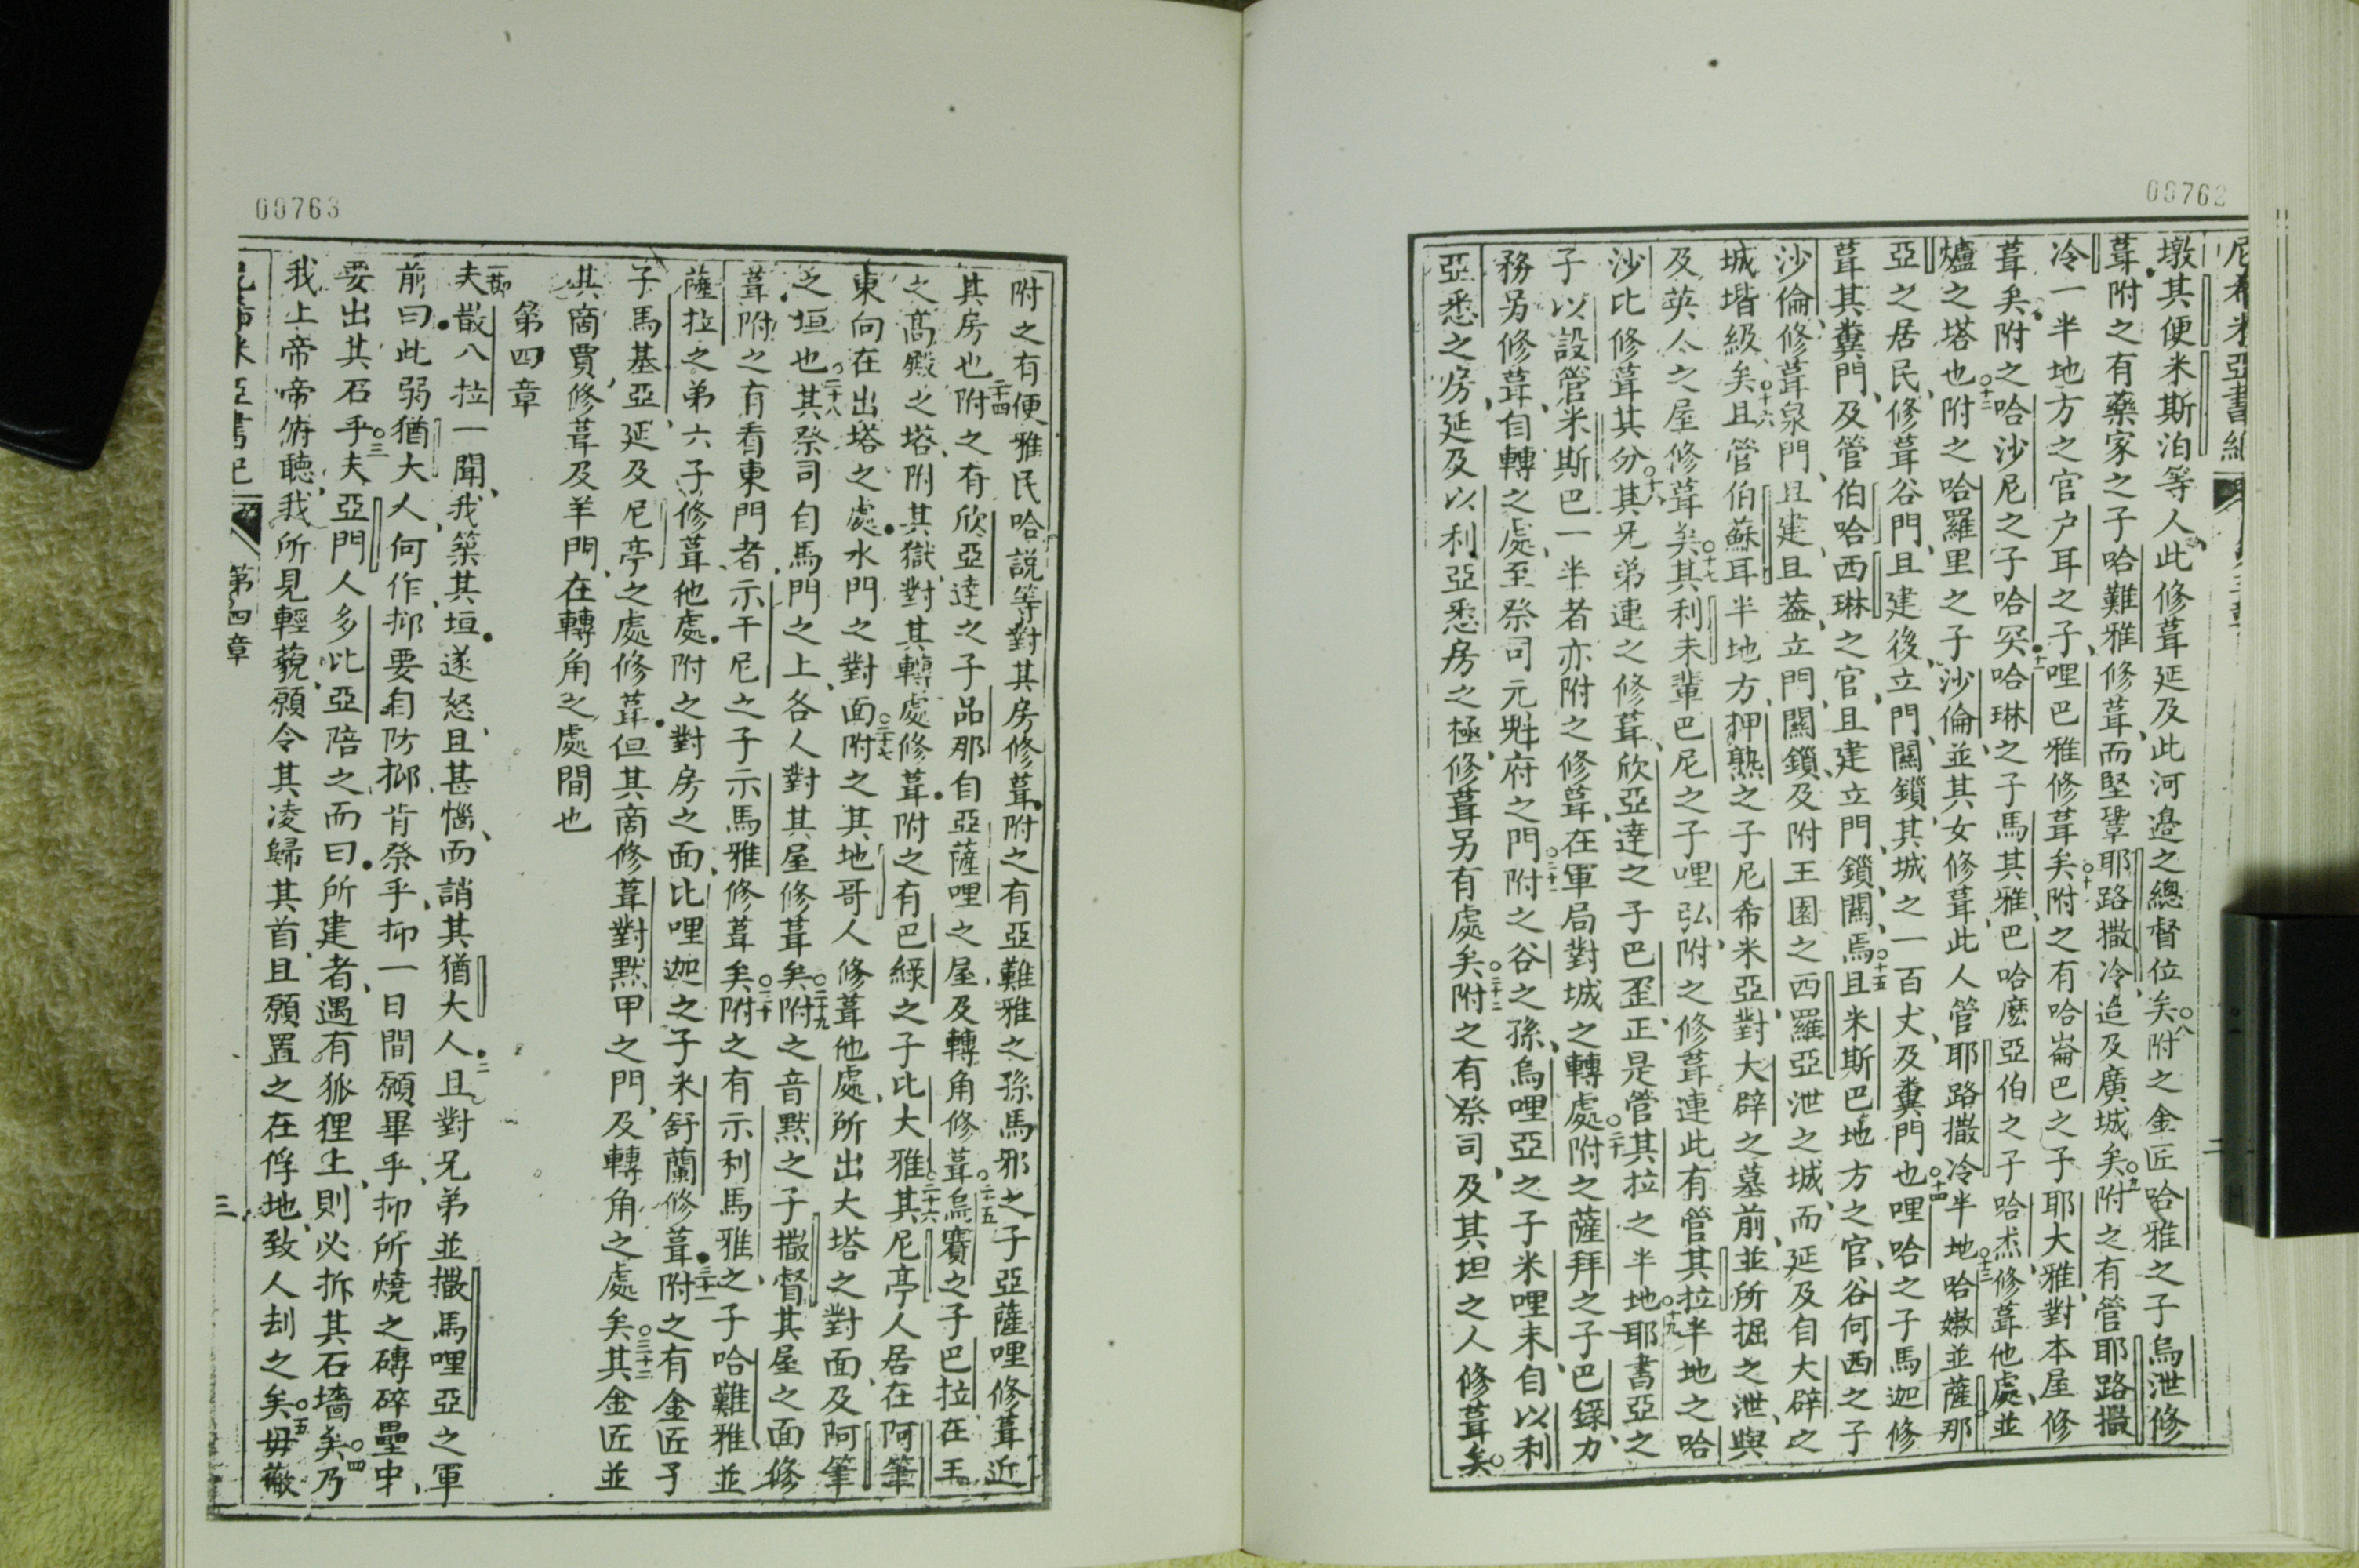 00762
墩其便米斯泊等人此修葺延及此河邊之總督位矣○八附之金匠哈雅之子烏泄修
葺附之有藥家之子哈難雅修葺而堅鞏耶路撒冷追及廣城矣○九附之有管耶路撒
冷一半地方之官户耳之子哩巴雅修葺矣○十附之有哈崙巴之子耶大雅對本屋修
葺矣附之哈沙尼之子哈突十一哈琳之子馬其雅巴哈麽亞伯之子哈杰修葺他處並
爐之塔也○十二附之哈羅里之子沙倫並其女修葺此人管耶路撒冷半地○十三哈嫩並薩那
亞之居民修葺谷門且建後立門關鎖其城之一百丈及糞門也○十四哩哈之子馬迦修
葺其糞門及管伯哈西琳之官且建立門鎖關焉○十五且米斯巴地方之官谷何西之子
沙倫修葺泉門且建且蓋立門關鎖及附王園之西羅亞泄之城而延及自大辟之
城堦級矣○十六且管伯蘇耳半地方押熟之子尼希米亞對大辟之墓前並所掘之泄與
及英人之屋修葺矣○十七其利未輩巴尼之子哩弘附之修葺連此有管其拉半地之哈
沙比修葺其分○十八其兄弟連之修葺欣亞達之子巴歪正是管其拉之半地○十九耶書亞之
子以設管米斯巴一半者亦附之修葺在軍局對城之轉處○二十附之薩拜之子巴錄力
務另修葺自轉之處至祭司元魁府之門○二十一附之谷之孫烏哩亞之子米哩末自以利
亞悉之房延及以利亞悉房之極修葺另有處矣○二十二附之有祭司及其坦之人修葺矣○
00763
附之有便雅民哈説等對其房修葺附之有亞難雅之孫馬邪之子亞薩哩修葺近
其房也二十四附之有欣亞達之子品那自亞薩哩之屋及轉角修葺○二十五烏賽之子巴拉在王
之高殿之塔附其獄對其轉處修葺附之有巴綠之子比大雅○二十六其尼亭人居在阿筆
東向在出塔之處水門之對面○二十七附之其地哥人修葺他處所出大塔之對面及阿筆
之垣也○二十八其祭司自馬門之上各人對其屋修葺矣○二十九附之音默之子撒督其屋之面修
葺附之有看東門者示干尼之子示馬雅修葺矣○三十附之有示利馬雅之子哈難雅並
薩拉之弟六子修葺他處附之對房之面比哩迦之子米舒蘭修葺三十一附之有金匠子
子馬基亞延及尼亭之處修葺但其商修葺對默甲之門及轉角之處矣○三十二其金匠並
其商賈修葺及羊門在轉角之處間也
第四章
一節夫散八拉一聞我築其垣遂怒且甚惱而誚其猶大人二且對兄弟並撒馬哩亞之軍
前曰此弱猶大人何作抑要自防抑肯祭乎抑一日間願畢乎抑所燒之磚碎壘中
要出其石乎○三夫亞門人多比亞陪之而曰所建者遇有狐狸上則必拆其石墻矣○四乃
我上帝帝俯聽我所見輕藐願令其凌歸其首且願置之在俘地致人刦之矣○五毋蔽
第四章
三